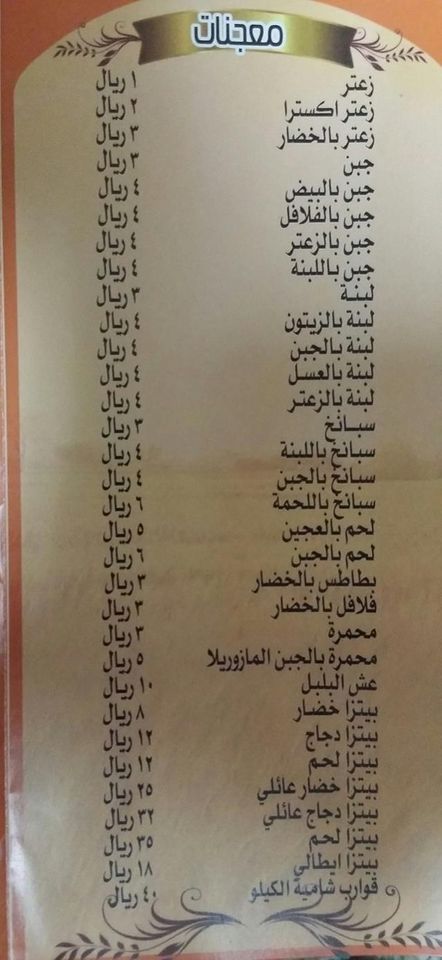 معجنات
زعتر ١ ريال
زعتر اكسترا ٢ ريال
زعتر بالخضار ٣ ريال
جبن ٣ ريال
جبن بالبيض ٤ ريال
جبن بالفلافل ٤ ريال
جبن بالزعتر ٤ ريال
جبن باللبنة ٤ ريال
لبنـة ٣ ريال
لبنة بالزيتون ٤ ريال
لبنة بالجبن ٤ ريال
لبنة بالعسـل ٤ ريال
لبنة بالزعتـر ٤ ريال
سـبـانـخ ٣ ريال
سبانخ باللبنة ٤ ريال
سبانخ بالجبن ٤ ريال
سبانخ باللحمة ٦ ريال
لحم بالعجين ٥ ريال
لحم بالجبن ٦ ريال
بطاطس بالخضار ٣ ريال
فلافل بالخضار ٣ ريال
محمرة ٣ ريال
محمرة بالجبن المازوريلا ٥ ريال
عش البلبل ١٠ ريال
بيتزا خضار ٨ ريال
بيتزا دجاج ١٢ ريال
بيتزا لحم ١٢ ريال
بيتزا خضار عائلي ٢٥ ريال
بيتزا دجاج عائلي ٣٢ ريال
بيتزا لحم ٣٥ ريال
بيتزا ايطالي ١٨ ريال
قوارب شامية الكيلو ٤٠ ريال